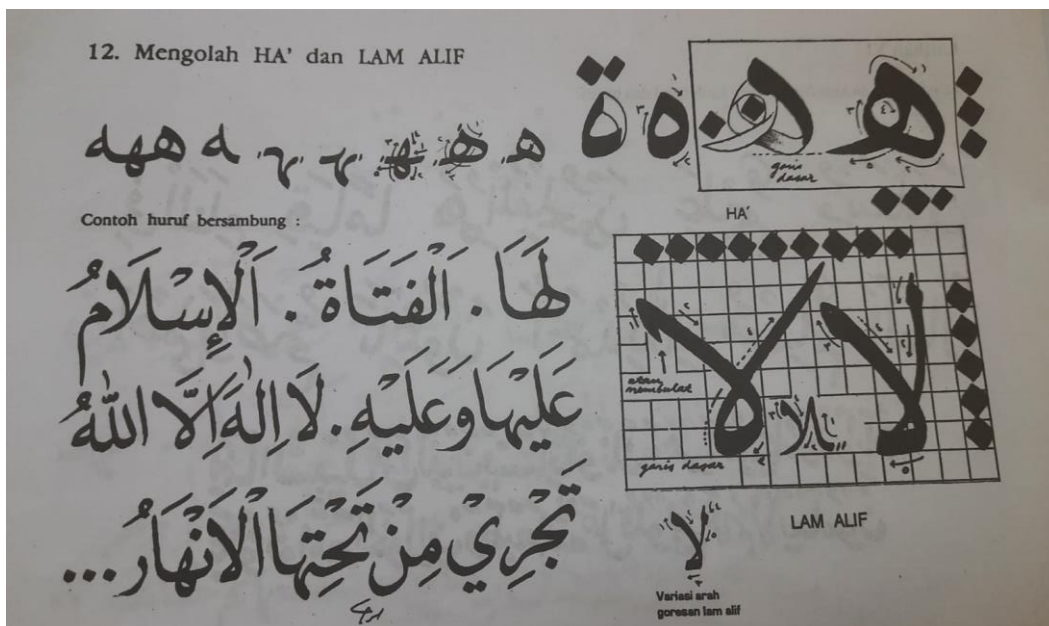 12. Mengolah HA' dan LAM ALIF
ه ه ه ة
garis dasar
HA'
ههه ه ـهـ ـهـ ـهـ هـ هـ
Contoh huruf bersambung :
لَهَا . اَلْفَتَاةُ . اَلْإِسْلَامُ
عَلَيْهَا وَعَلَيْهِ . لَا اِلٰهَ اِلَّا اللهُ
تَجْرِيْ مِنْ تَحْتِهَا الْاَنْهَارُ ...
لا لا
atau membulat
garis dasar
ـلا
LAM ALIF
لا
Variasi arah
goresan lam alif